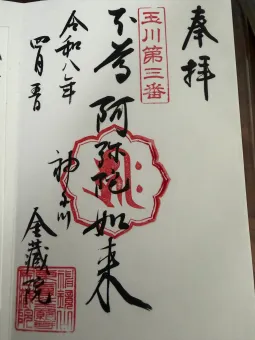 奉拝
玉川第三番
本尊 阿弥陀如来
神奈川
金藏院
令和八年
四月